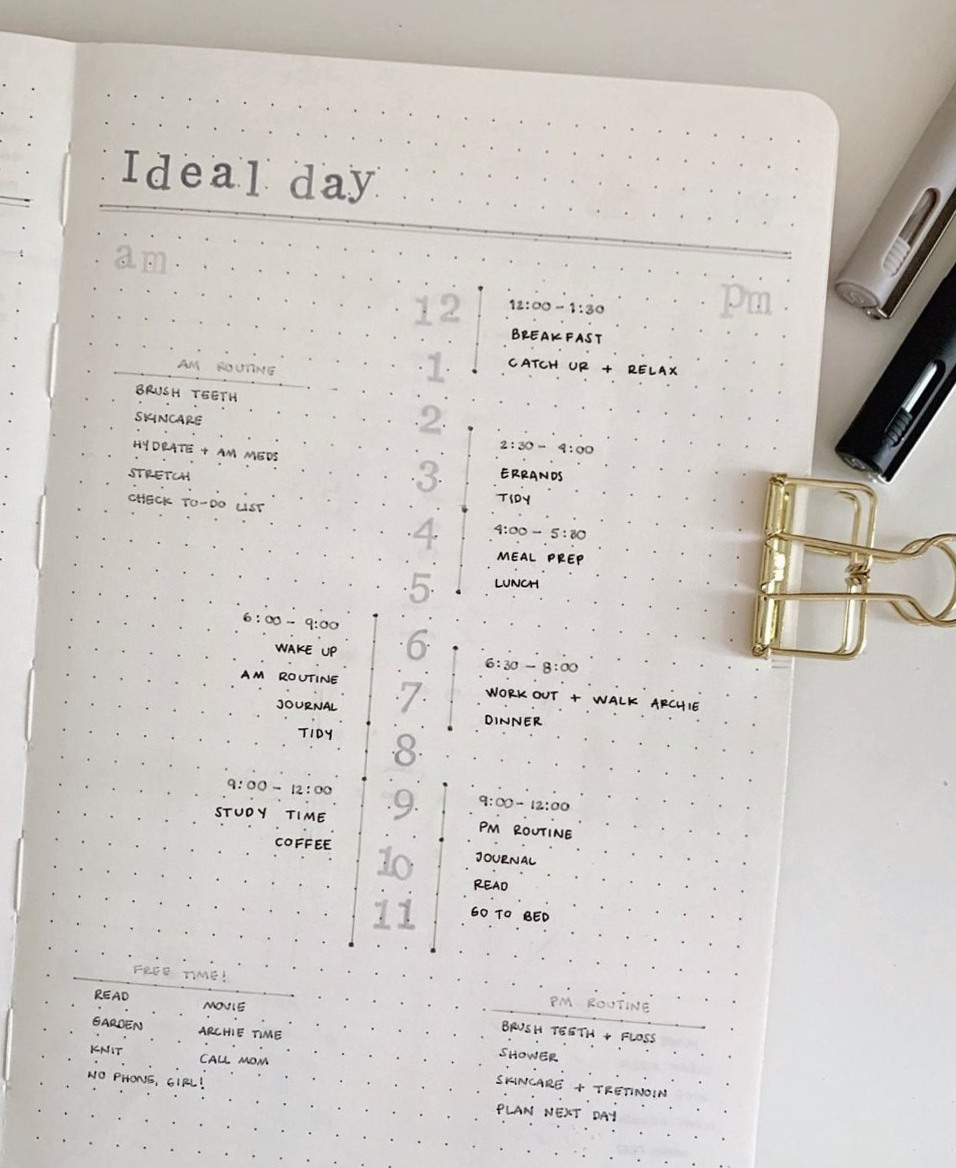 Ideal day
am
pm
12
1
2
3
4
5
6
7
8
9
10
11
12:00 - 1:30
BREAKFAST
CATCH UP + RELAX
AM ROUTINE
BRUSH TEETH
SKINCARE
HYDRATE + AM MEDS
STRETCH
CHECK TO-DO LIST
2:30 - 4:00
ERRANDS
TIDY
4:00 - 5:30
MEAL PREP
LUNCH
6:00 - 9:00
WAKE UP
AM ROUTINE
JOURNAL
TIDY
6:30 - 8:00
WORK OUT + WALK ARCHIE
DINNER
9:00 - 12:00
STUDY TIME
COFFEE
9:00 - 12:00
PM ROUTINE
JOURNAL
READ
GO TO BED
FREE TIME!
READ
GARDEN
KNIT
NO PHONE, GIRL!
MOVIE
ARCHIE TIME
CALL MOM
PM ROUTINE
BRUSH TEETH + FLOSS
SHOWER
SKINCARE + TRETINOIN
PLAN NEXT DAY